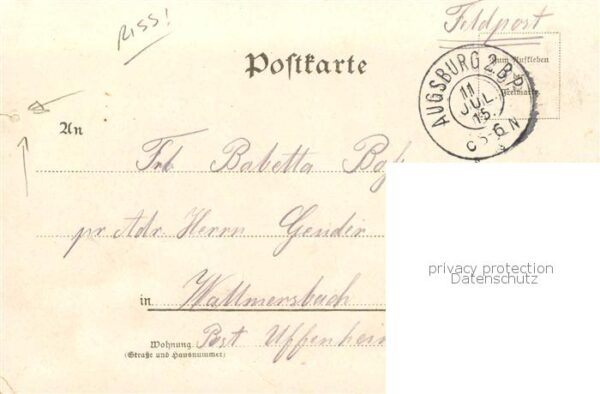 RISS!
Feldpost
Postkarte
Zum Aufkleben
AUGSBURG 2.B.P.
11
JUL.
15.
C 5-6 N
An
Frl. Babetta
pr Adr. Herrn Gendir
in Wallmersbach
Wohnung
(Straße und Hausnummer)
Post Uffenheim
privacy protection
Datenschutz